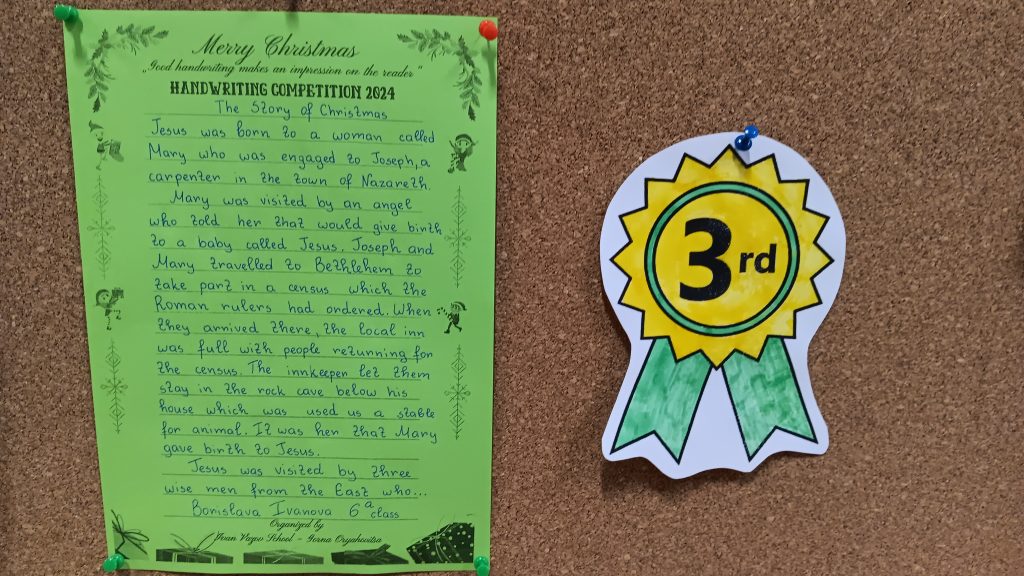 Merry Christmas
„Good handwriting makes an impression on the reader"
HANDWRITING COMPETITION 2024
The Story of Christmas
Jesus was born to a woman called
Mary who was engaged to Joseph, a
carpenter in the town of Nazareth.
Mary was visited by an angel
who told her that would give birth
to a baby called Jesus. Joseph and
Mary travelled to Bethlehem to
take part in a census which the
Roman rulers had ordered. When
they arrived there, the local inn
was full with people returning for
the census. The innkeeper let them
stay in the rock cave below his
house which was used us a stable
for animal. It was her that Mary
gave birth to Jesus.
Jesus was visited by three
wise men from the East who...
Borislava Ivanova 6ª class
Organized by
Ivan Vazov School - Gorna Oryahovitsa
3rd